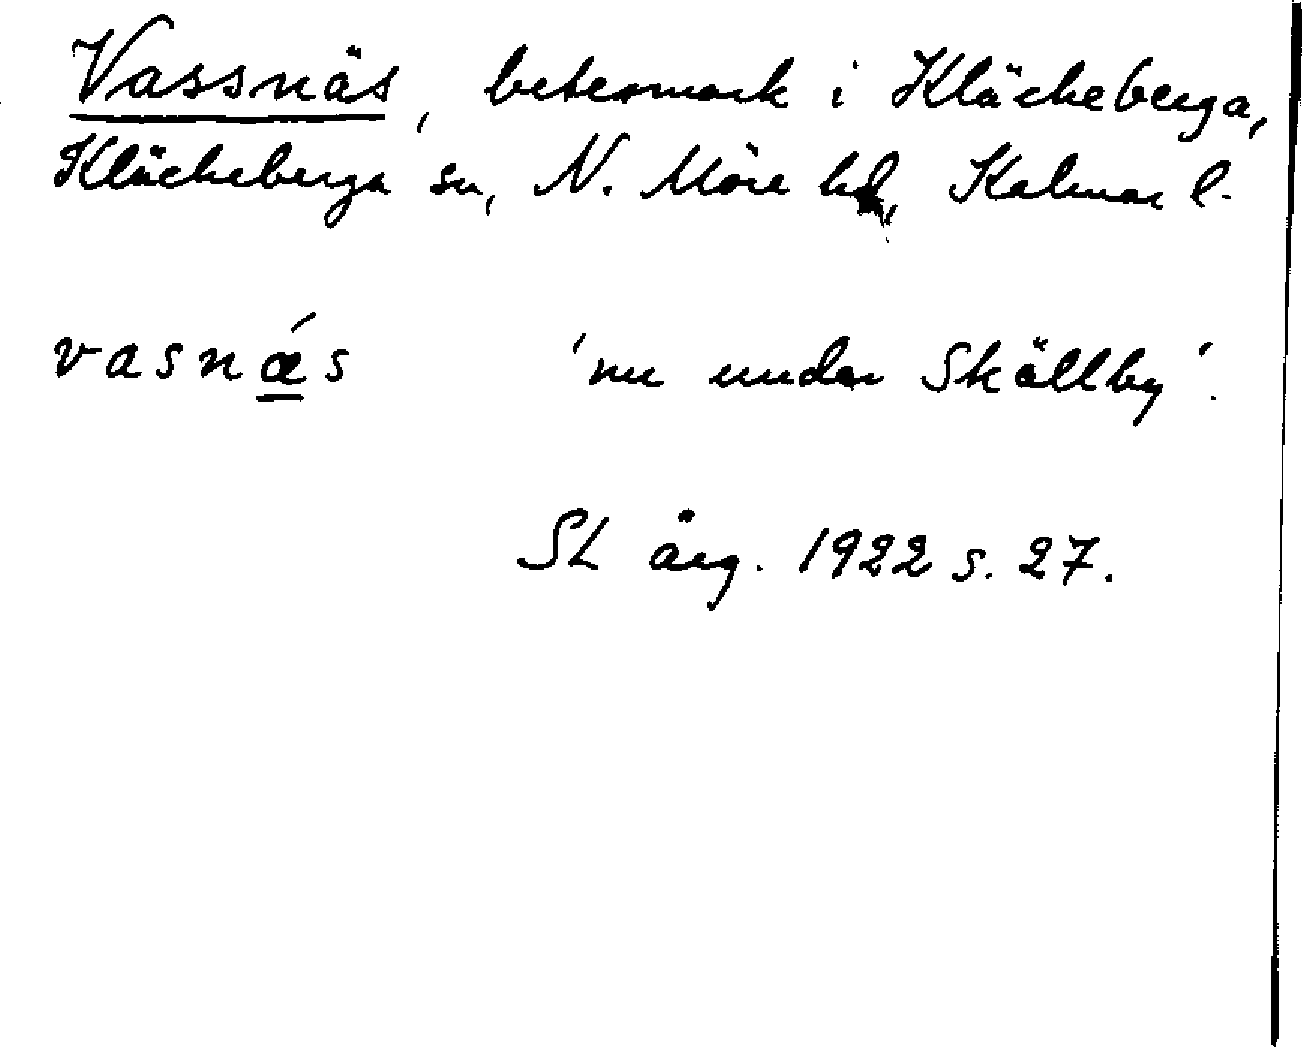 Vassnäs, betesmark i Kläckeberga,
Kläckeberga sn, N. Möre hd, Kalmar l.
vasnǽs 'nu under Skällby'.
SL årg. 1922 s. 27.